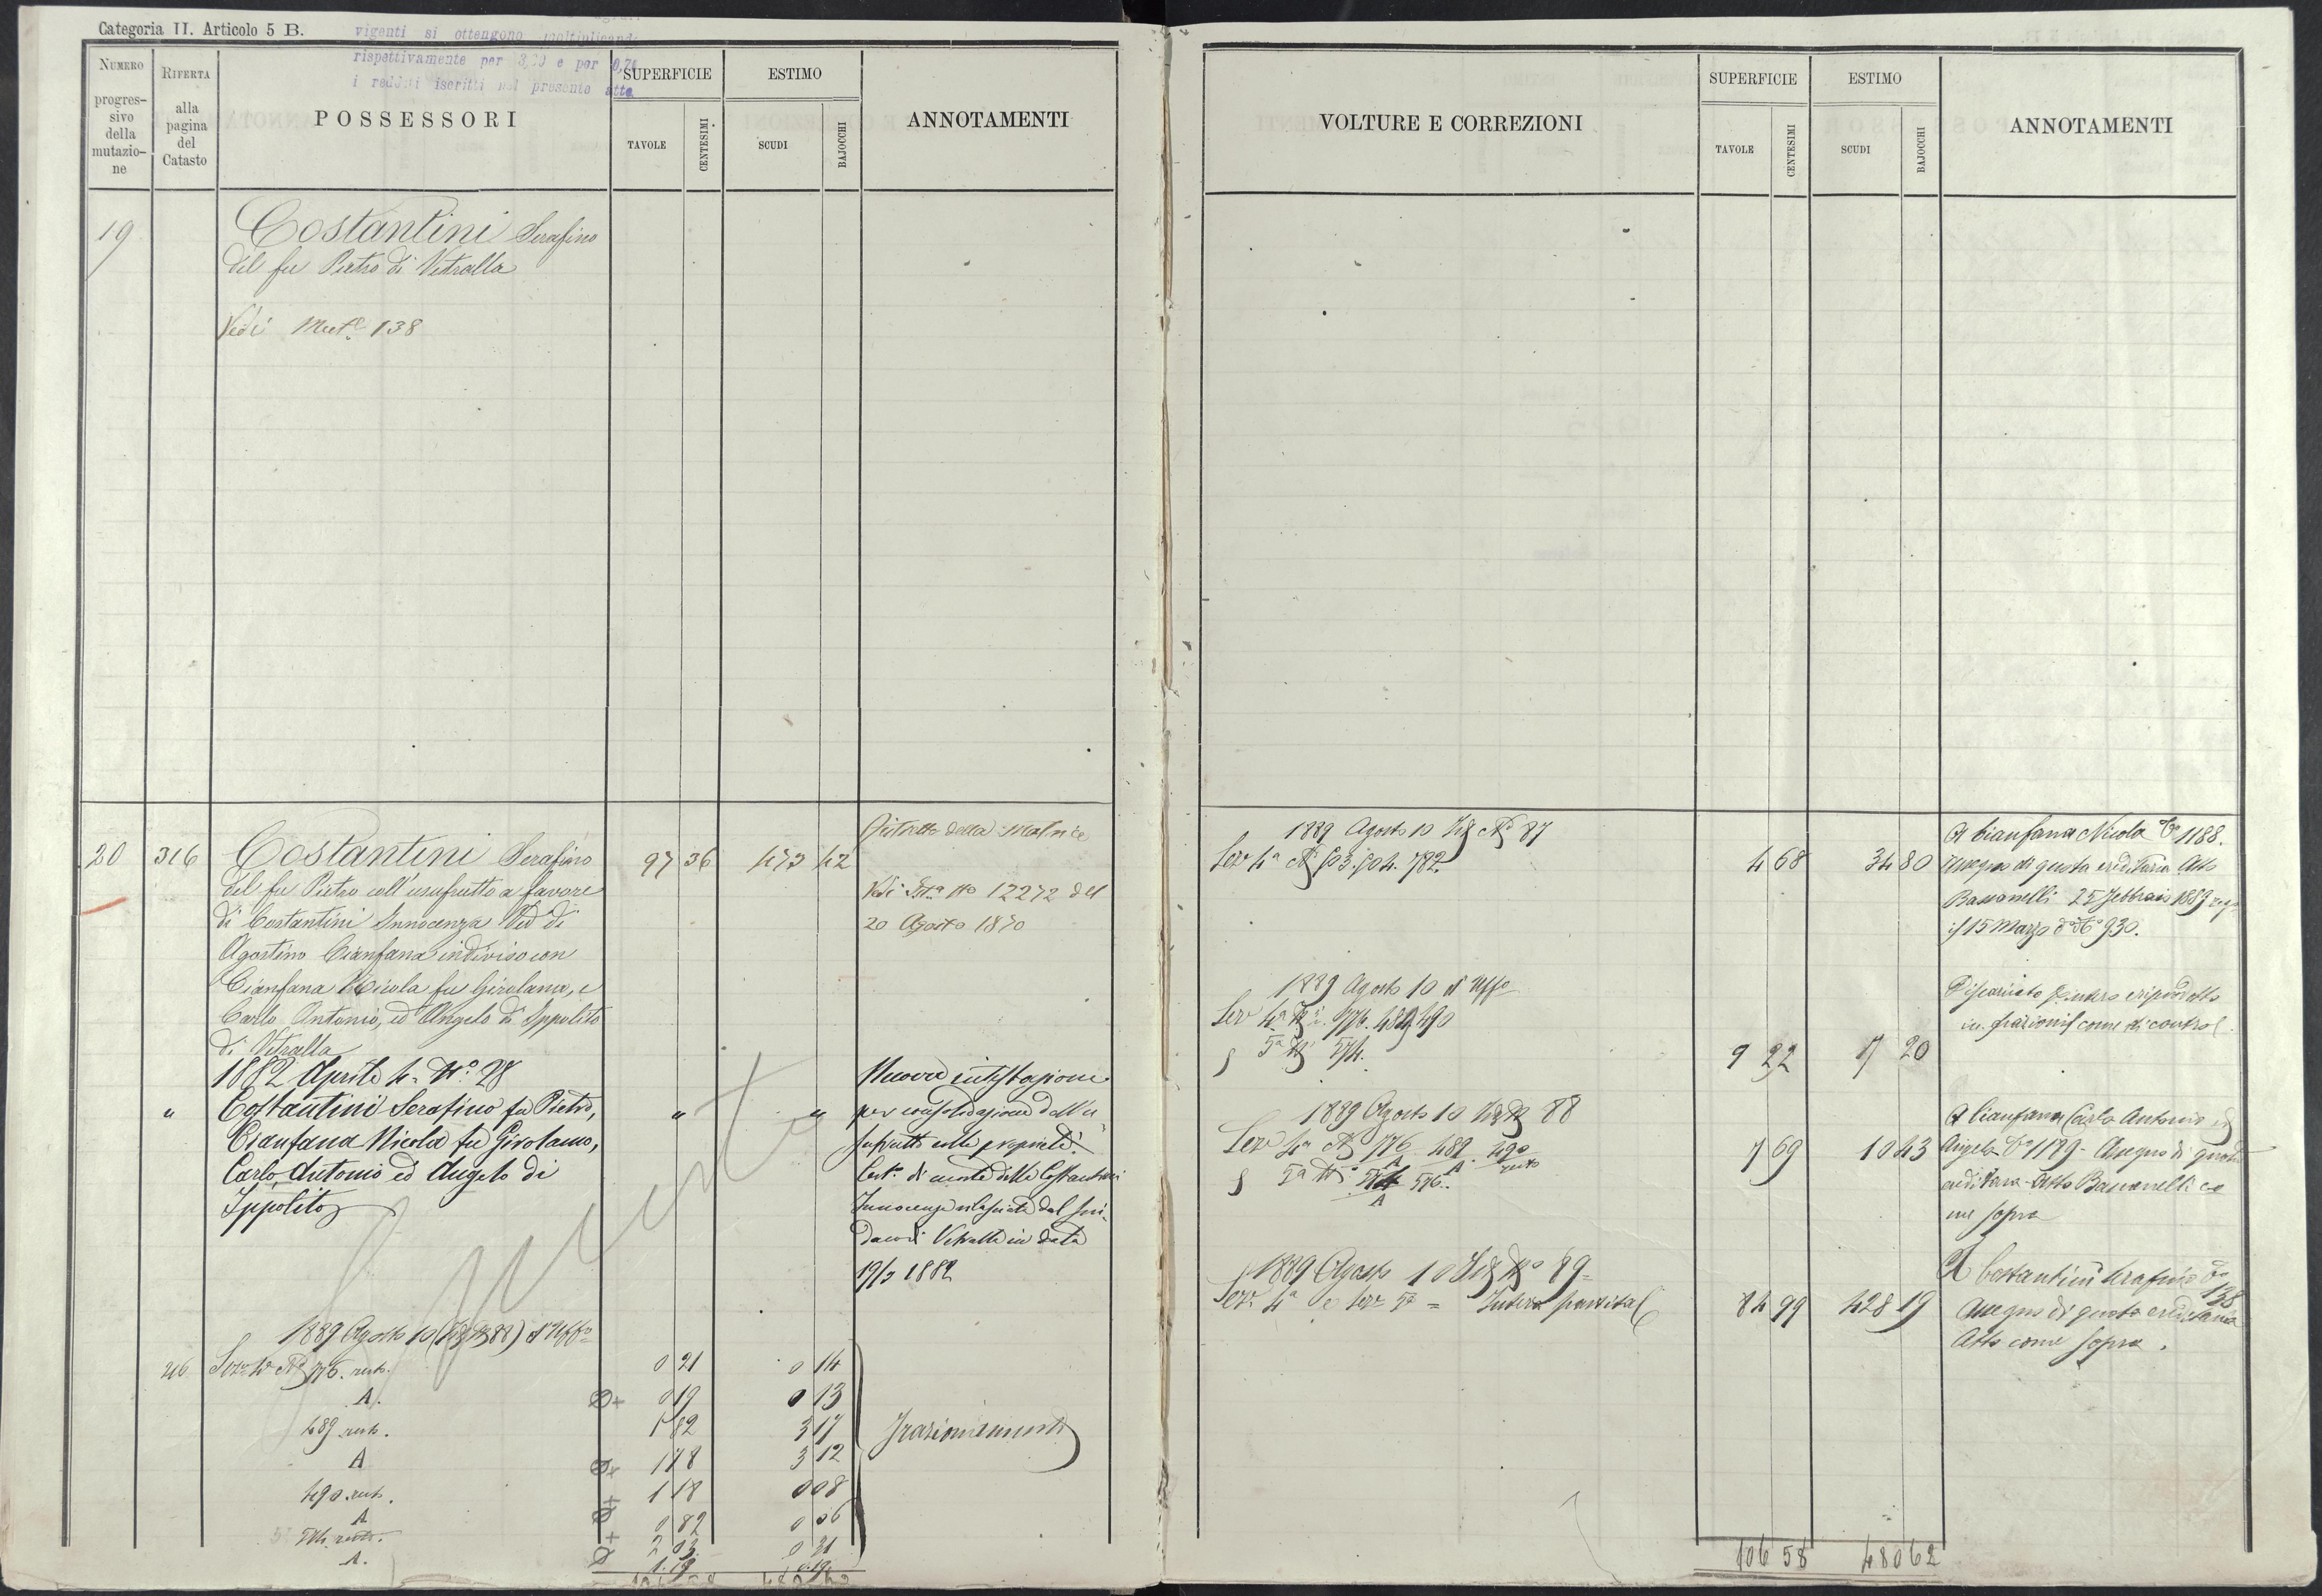 Categoria II. Articolo 5 B.
vigenti si ottengono moltiplicand
rispettivamente per 3,00 e per
i redditi iscritti nel presente atto
NUMERO
progres-
sivo
della
mutazio-
ne
RIFERTA
alla
pagina
del
Catasto
POSSESSORI
SUPERFICIE
TAVOLE
CENTESIMI
ESTIMO
SCUDI
BAJOCCHI
ANNOTAMENTI
19
Costantini Serafino
del fu Pietro di Vetralla
Vedi Mute 138
20 316 Costantini Serafino 97 36 473 42
del fu Pietro coll'usufrutto a favore
di Costantini Innocenza Ved di
Agostino Cianfana indiviso con
Cianfana Nicola fu Girolamo, e
Carlo Antonio, ed Angelo di Ippolito
di Vetralla
della Matrice
Vedi 12272 del
20 Agosto 1870
1882 Aprile 4. No. 28
" Costantini Serafino fu Pietro, " "
Cianfana Nicola fu Girolamo,
Carlo Antonio ed Angelo di
Ippolito
Nuova intestazione
per consolidazione dell'u
sufrutto colla proprietà.
Cert. di morte della Costantini
Innocenza rilasciato dal Sin-
daco di Vetralla in data
19/3 1882
1889 Agosto 10
216 Sez. 4a 176. rest. 0 21 0 14
A. 0 19 0 13
489 rest. 1 82 3 17
A 1 78 3 12
490 rest. 1 18 0 08
A 0 82 0 06
574 rest. 2 03 0 21
A. 1.19 0.19
Frazionamento
VOLTURE E CORREZIONI
SUPERFICIE
TAVOLE
CENTESIMI
ESTIMO
SCUDI
BAJOCCHI
ANNOTAMENTI
1889 Agosto 10 87
Sez 4a 503. 504. 782. 4 68 34 80
A Cianfana Nicola 1188.
Assegno di quota ereditaria Atto
Bassanelli 25 Febbraio 1889
15 Marzo 930.
1889 Agosto 10 d'Uffo
Sez 4a 176. 489. 490
5a 574. 9 22 7 20
Discaricato
in frazioni come di contro
1889 Agosto 10 88
Sez 4a 176 489. 490 7 69 10 43
A A resto
5a 574 576.
A
A Cianfana Carlo Antonio ed
Angelo 1189 - Assegno di quota
ereditaria - Atto Bassanelli co
me sopra
1889 Agosto 10 89
Sez. 4a e Sez. 5a = Intera partita 84 99 428 19
A Costantini Serafino
138
Assegno di quota ereditaria
Atto come sopra.
106 58 480 62